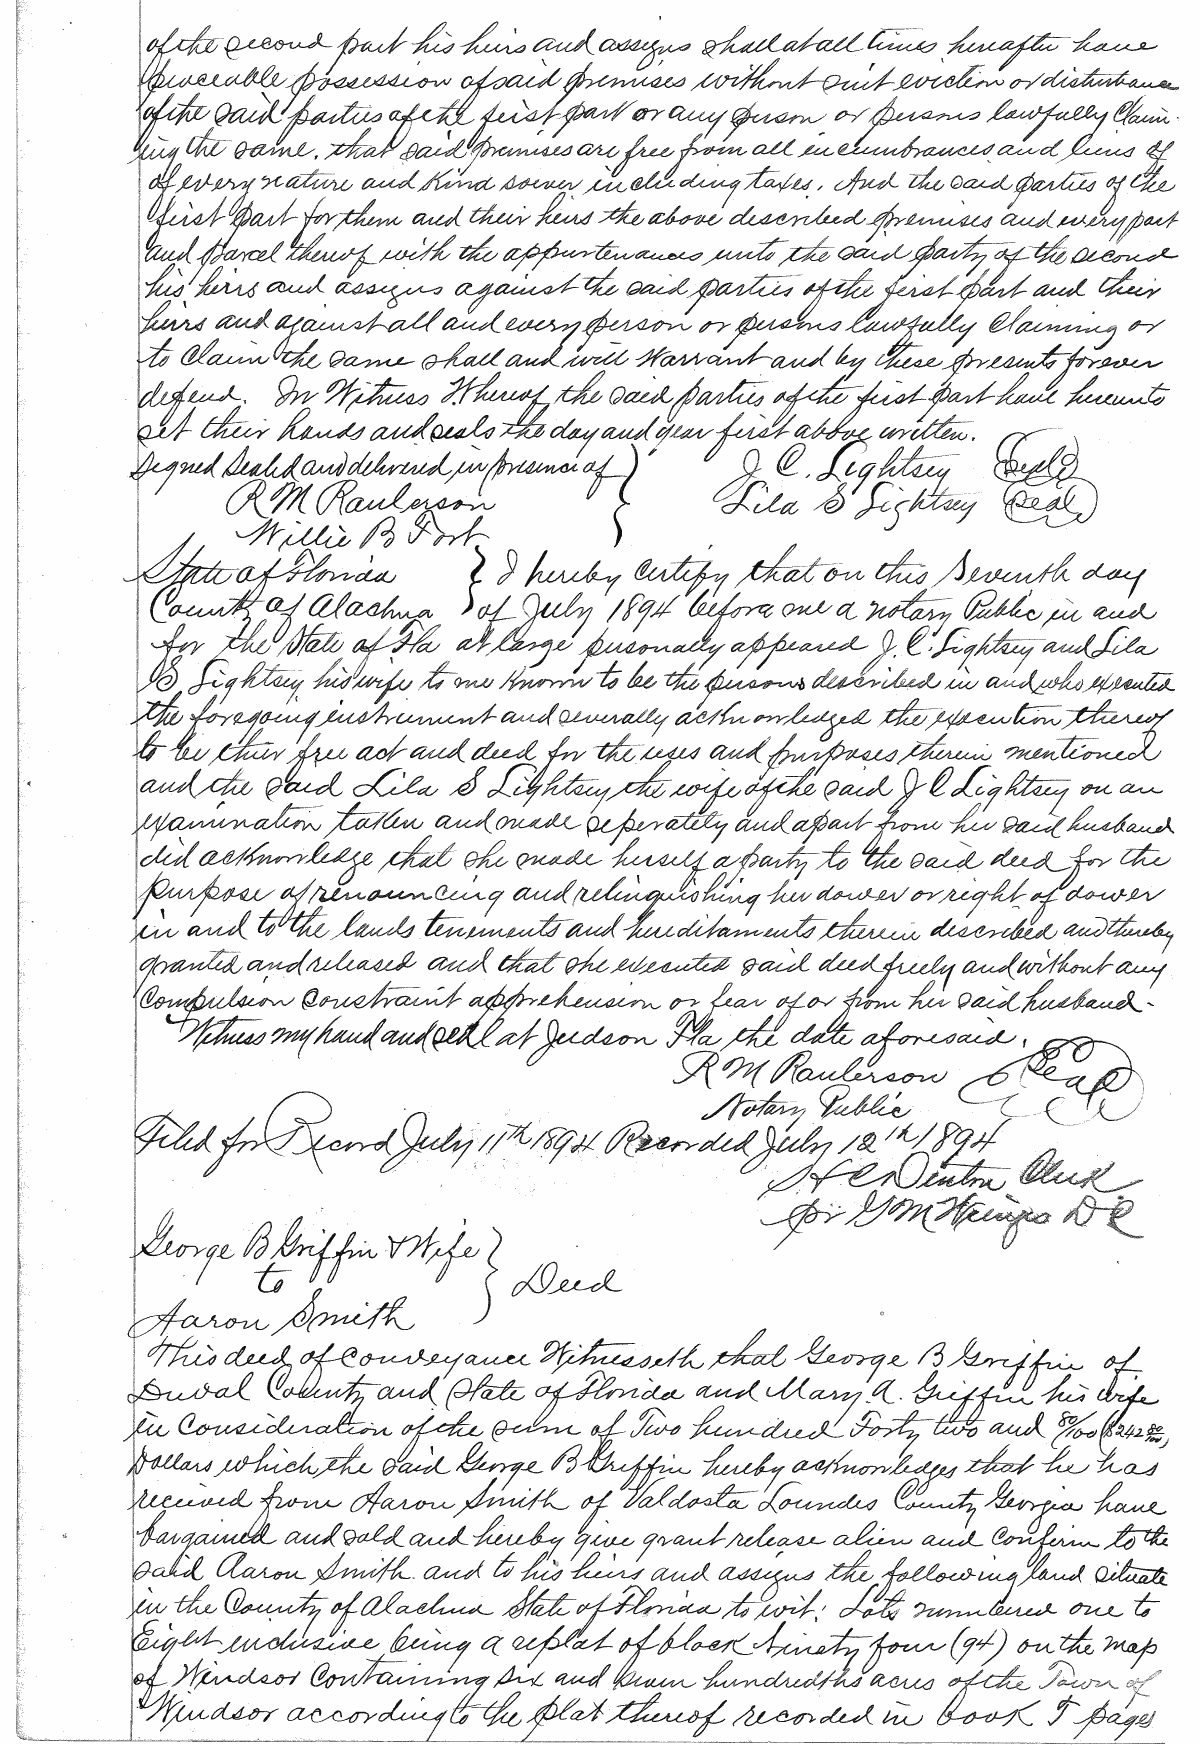 of the second part his heirs and assigns shall at all times hereafter have
peaceable possession of said premises without suit eviction or disturbance
of the said parties of the first part or any person or persons lawfully claim-
ing the same. that said premises are free from all incumbrances and liens of
of every nature and kind soever including taxes. And the said parties of the
first part for them and their heirs the above described premises and every part
and parcel thereof with the appurtenances unto the said party of the second
his heirs and assigns against the said parties of the first part and their
heirs and against all and every person or persons lawfully claiming or
to claim the same shall and will warrant and by these presents forever
defend. In Witness Whereof the said parties of the first part have hereunto
set their hands and seals the day and year first above written.
Signed Sealed and delivered in presence of } J. C. Lightsey (Seal)
R M Raulerson } Lila S Lightsey (Seal)
Willie B Fort
State of Florida } I hereby Certify that on this Seventh day
County of Alachua } of July 1894 before me a notary Public in and
for the State of Fla at large personally appeared J. C. Lightsey and Lila
S Lightsey his wife to me known to be the persons described in and who executed
the foregoing instrument and severally acknowledged the execution thereof
to be their free act and deed for the uses and purposes therein mentioned
and the said Lila S Lightsey the wife of the said J C Lightsey on an
examination taken and made seperately and apart from her said husband
did acknowledge that she made herself a party to the said deed for the
purpose of renouncing and relinquishing her dower or right of dower
in and to the lands tenements and hereditaments therein described and thereby
granted and released and that she executed said deed freely and without any
Compulsion Constraint apprehension or fear of or from her said husband-
Witness my hand and seal at Judson Fla the date aforesaid.
R M Raulerson Seal
Notary Public
Filed for Record July 11th 1894 Recorded July 12th 1894
Denton Clerk
pr D C
George B Griffin & Wife }
to } Deed
Aaron Smith
This deed of conveyance Witnesseth that George B Griffin of
Duval County and State of Florida and Mary A. Griffin his wife
in Consideration of the sum of Two hundred Forty two and 80/100 ($242 80/100)
Dollars which the said George B Griffin hereby acknowledges that he has
received from Aaron Smith of Valdosta Loundes County Georgia have
bargained and sold and hereby give grant release alien and confirm to the
said Aaron Smith and to his heirs and assigns the following land situate
in the County of Alachua State of Florida to wit: Lots numbered one to
Eight inclusive being a replat of block Ninety four (94) on the map
of Windsor Containing Six and seven hundredths acres of the Town of
Windsor according to the plat thereof recorded in book T pages